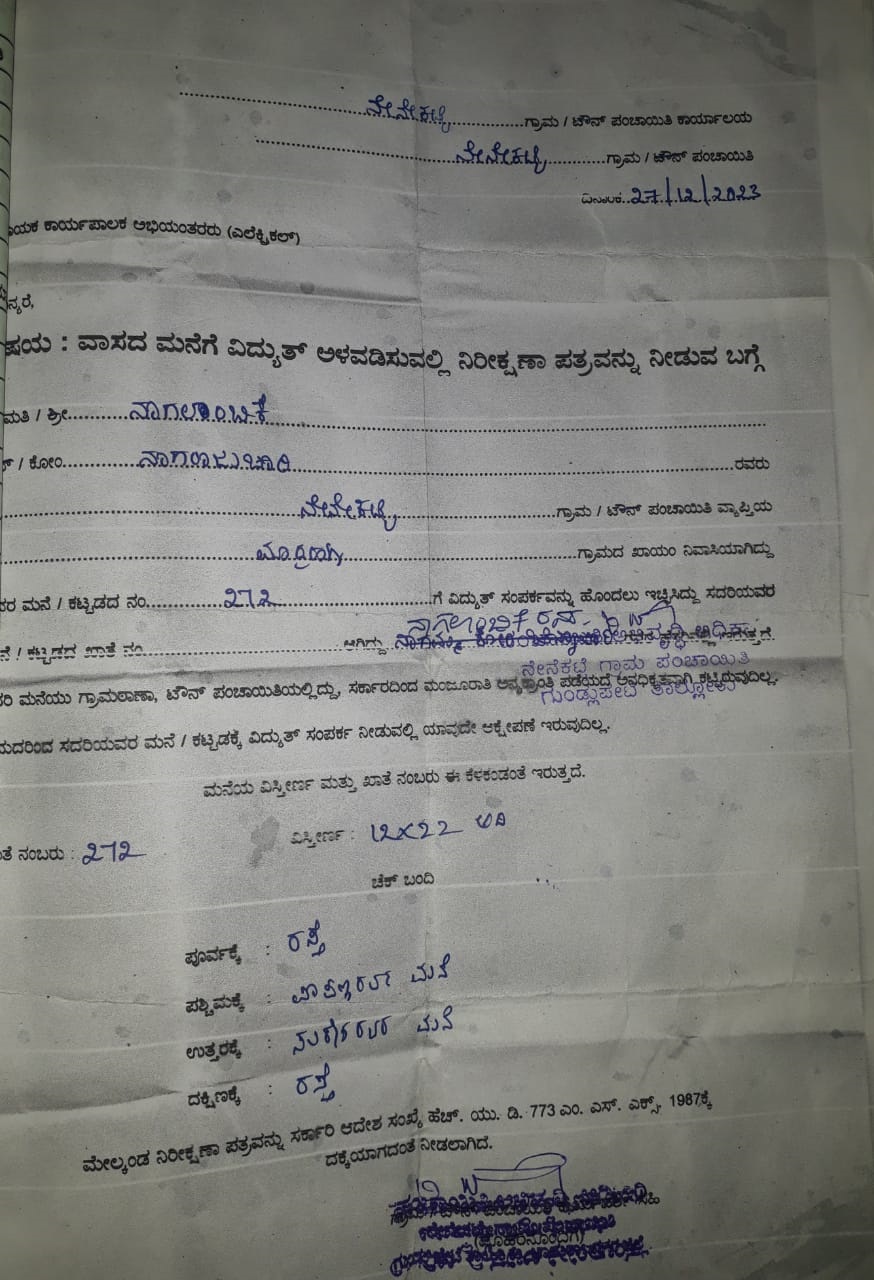 ನೇನೇಕಟ್ಟೆ ಗ್ರಾಮ / ಟೌನ್ ಪಂಚಾಯಿತಿ ಕಾರ್ಯಾಲಯ
ನೇನೇಕಟ್ಟೆ ಗ್ರಾಮ / ಟೌನ್ ಪಂಚಾಯಿತಿ
ದಿನಾಂಕ..27/12/2023
ಯಕ ಕಾರ್ಯಪಾಲಕ ಅಭಿಯಂತರರು (ಎಲೆಕ್ಟ್ರಿಕಲ್)
ನ್ಯರೆ,
ಷಯ : ವಾಸದ ಮನೆಗೆ ವಿದ್ಯುತ್ ಅಳವಡಿಸುವಲ್ಲಿ ನಿರೀಕ್ಷಣಾ ಪತ್ರವನ್ನು ನೀಡುವ ಬಗ್ಗೆ
ಮತಿ / ಶ್ರೀ ನಾಗಲಾಂಬಿಕೆ
/ ಕೋಂ ನಾಗರಾಜುಚಾರಿ ರವರು
ನೇನೇಕಟ್ಟೆ ಗ್ರಾಮ / ಟೌನ್ ಪಂಚಾಯಿತಿ ವ್ಯಾಪ್ತಿಯ
ಗ್ರಾಮದ ಖಾಯಂ ನಿವಾಸಿಯಾಗಿದ್ದು
ರ ಮನೆ / ಕಟ್ಟಡದ ನಂ. 272 ಗೆ ವಿದ್ಯುತ್ ಸಂಪರ್ಕವನ್ನು ಹೊಂದಲು ಇಚ್ಛಿಸಿದ್ದು ಸದರಿಯವರ
ನಾಗಲಾಂಬಿಕೆ ರವರ
ನೆ / ಕಟ್ಟಡದ ಖಾತೆ ನಂ. ಆಗಿದ್ದು
ನೇನೆಕಟ್ಟೆ ಗ್ರಾಮ ಪಂಚಾಯಿತಿ
ರಿ ಮನೆಯು ಗ್ರಾಮಠಾಣಾ, ಟೌನ್ ಪಂಚಾಯಿತಿಯಲ್ಲಿದ್ದು, ಸರ್ಕಾರದಿಂದ ಮಂಜೂರಾತಿ ಅನ್ಯಕ್ರಾಂತಿ ಪಡೆಯದೆ ಅನಧಿಕೃತವಾಗಿ ಕಟ್ಟಿರುವುದಿಲ್ಲ.
ಗುಂಡ್ಲುಪೇಟೆ ತಾಲ್ಲೂಕು
ದರಿಂದ ಸದರಿಯವರ ಮನೆ / ಕಟ್ಟಡಕ್ಕೆ ವಿದ್ಯುತ್ ಸಂಪರ್ಕ ನೀಡುವಲ್ಲಿ ಯಾವುದೇ ಆಕ್ಷೇಪಣೆ ಇರುವುದಿಲ್ಲ.
ಮನೆಯ ವಿಸ್ತೀರ್ಣ ಮತ್ತು ಖಾತೆ ನಂಬರು ಈ ಕೆಳಕಂಡಂತೆ ಇರುತ್ತದೆ.
ತೆ ನಂಬರು : 272 ವಿಸ್ತೀರ್ಣ : 12x22 ಅಡಿ
ಚೆಕ್ ಬಂದಿ
ಪೂರ್ವಕ್ಕೆ : ರಸ್ತೆ
ಪಶ್ಚಿಮಕ್ಕೆ : ಮನೆ
ಉತ್ತರಕ್ಕೆ : ಮನೆ
ದಕ್ಷಿಣಕ್ಕೆ : ರಸ್ತೆ
ಮೇಲ್ಕಂಡ ನಿರೀಕ್ಷಣಾ ಪತ್ರವನ್ನು ಸರ್ಕಾರಿ ಆದೇಶ ಸಂಖ್ಯೆ ಹೆಚ್. ಯು. ಡಿ. 773 ಎಂ. ಎಸ್. ಎಕ್ಸ್, 1987ಕ್ಕೆ
ದಕ್ಕೆಯಾಗದಂತೆ ನೀಡಲಾಗಿದೆ.